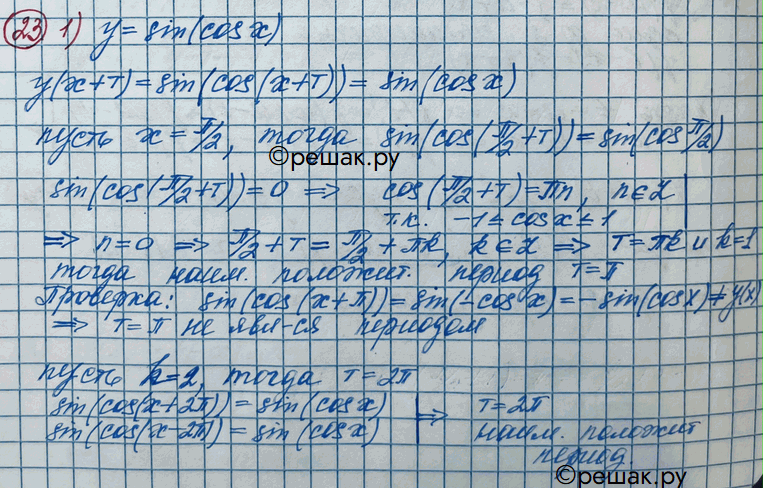 23 1) y = sin(cos x)
y(x+T) = sin(cos(x+T)) = sin(cos x)
пусть x = π/2, тогда sin(cos(π/2+T)) = sin(cos π/2)
©решак.ру
sin(cos(π/2+T)) = 0 ⇒ cos(π/2+T) = πn, n ∈ Z
т.к. -1 ≤ cos x ≤ 1
⇒ n=0 ⇒ π/2+T = π/2+πk, k ∈ Z ⇒ T=πk и k=1
тогда наим. положит. период T=π
Проверка: sin(cos(x+π)) = sin(-cos x) = -sin(cos x) ≠ y(x)
⇒ T=π не явл-ся периодом
пусть k=2, тогда T=2π
sin(cos(x+2π)) = sin(cos x) ⇒ T=2π
sin(cos(x-2π)) = sin(cos x) наим. положит
период.
©решак.ру